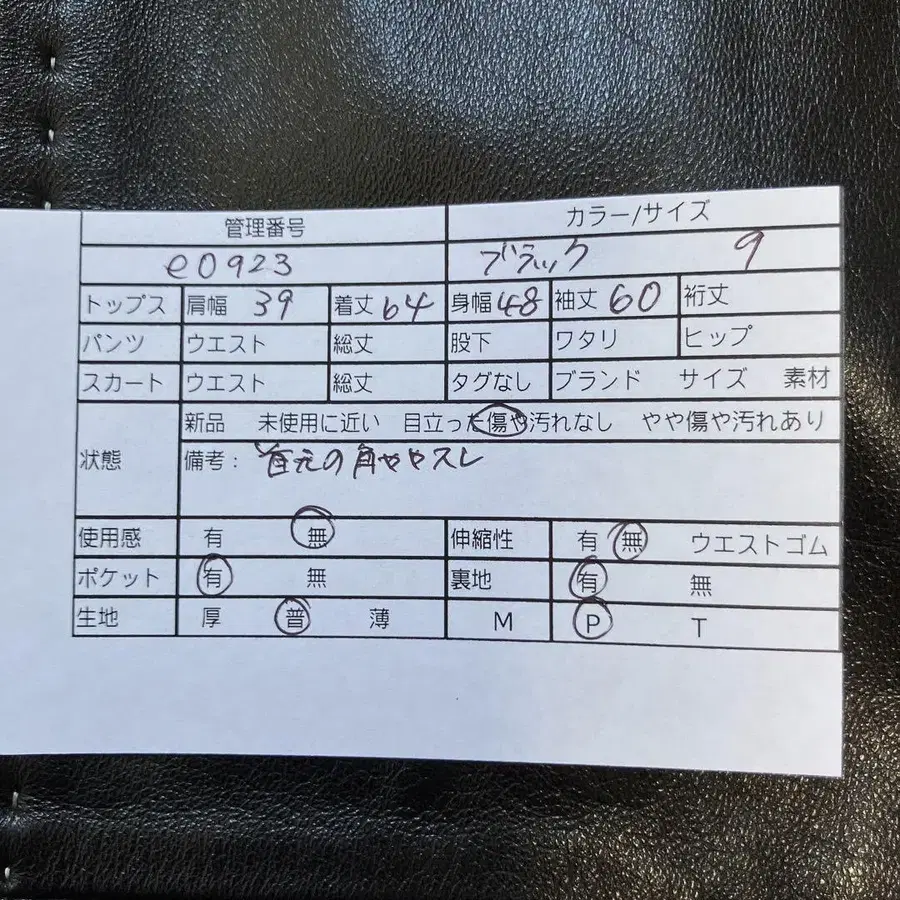 管理番号 カラー/サイズ
e0923 ブラック 9
トップス 肩幅 39 着丈 64 身幅 48 袖丈 60 裄丈
パンツ ウエスト 総丈 股下 ワタリ ヒップ
スカート ウエスト 総丈 タグなし ブランド サイズ 素材
新品 未使用に近い 目立った傷や汚れなし やや傷や汚れあり
状態 備考： 首元の角ややスレ
使用感 有 無 伸縮性 有 無 ウエストゴム
ポケット 有 無 裏地 有 無
生地 厚 普 薄 M P T